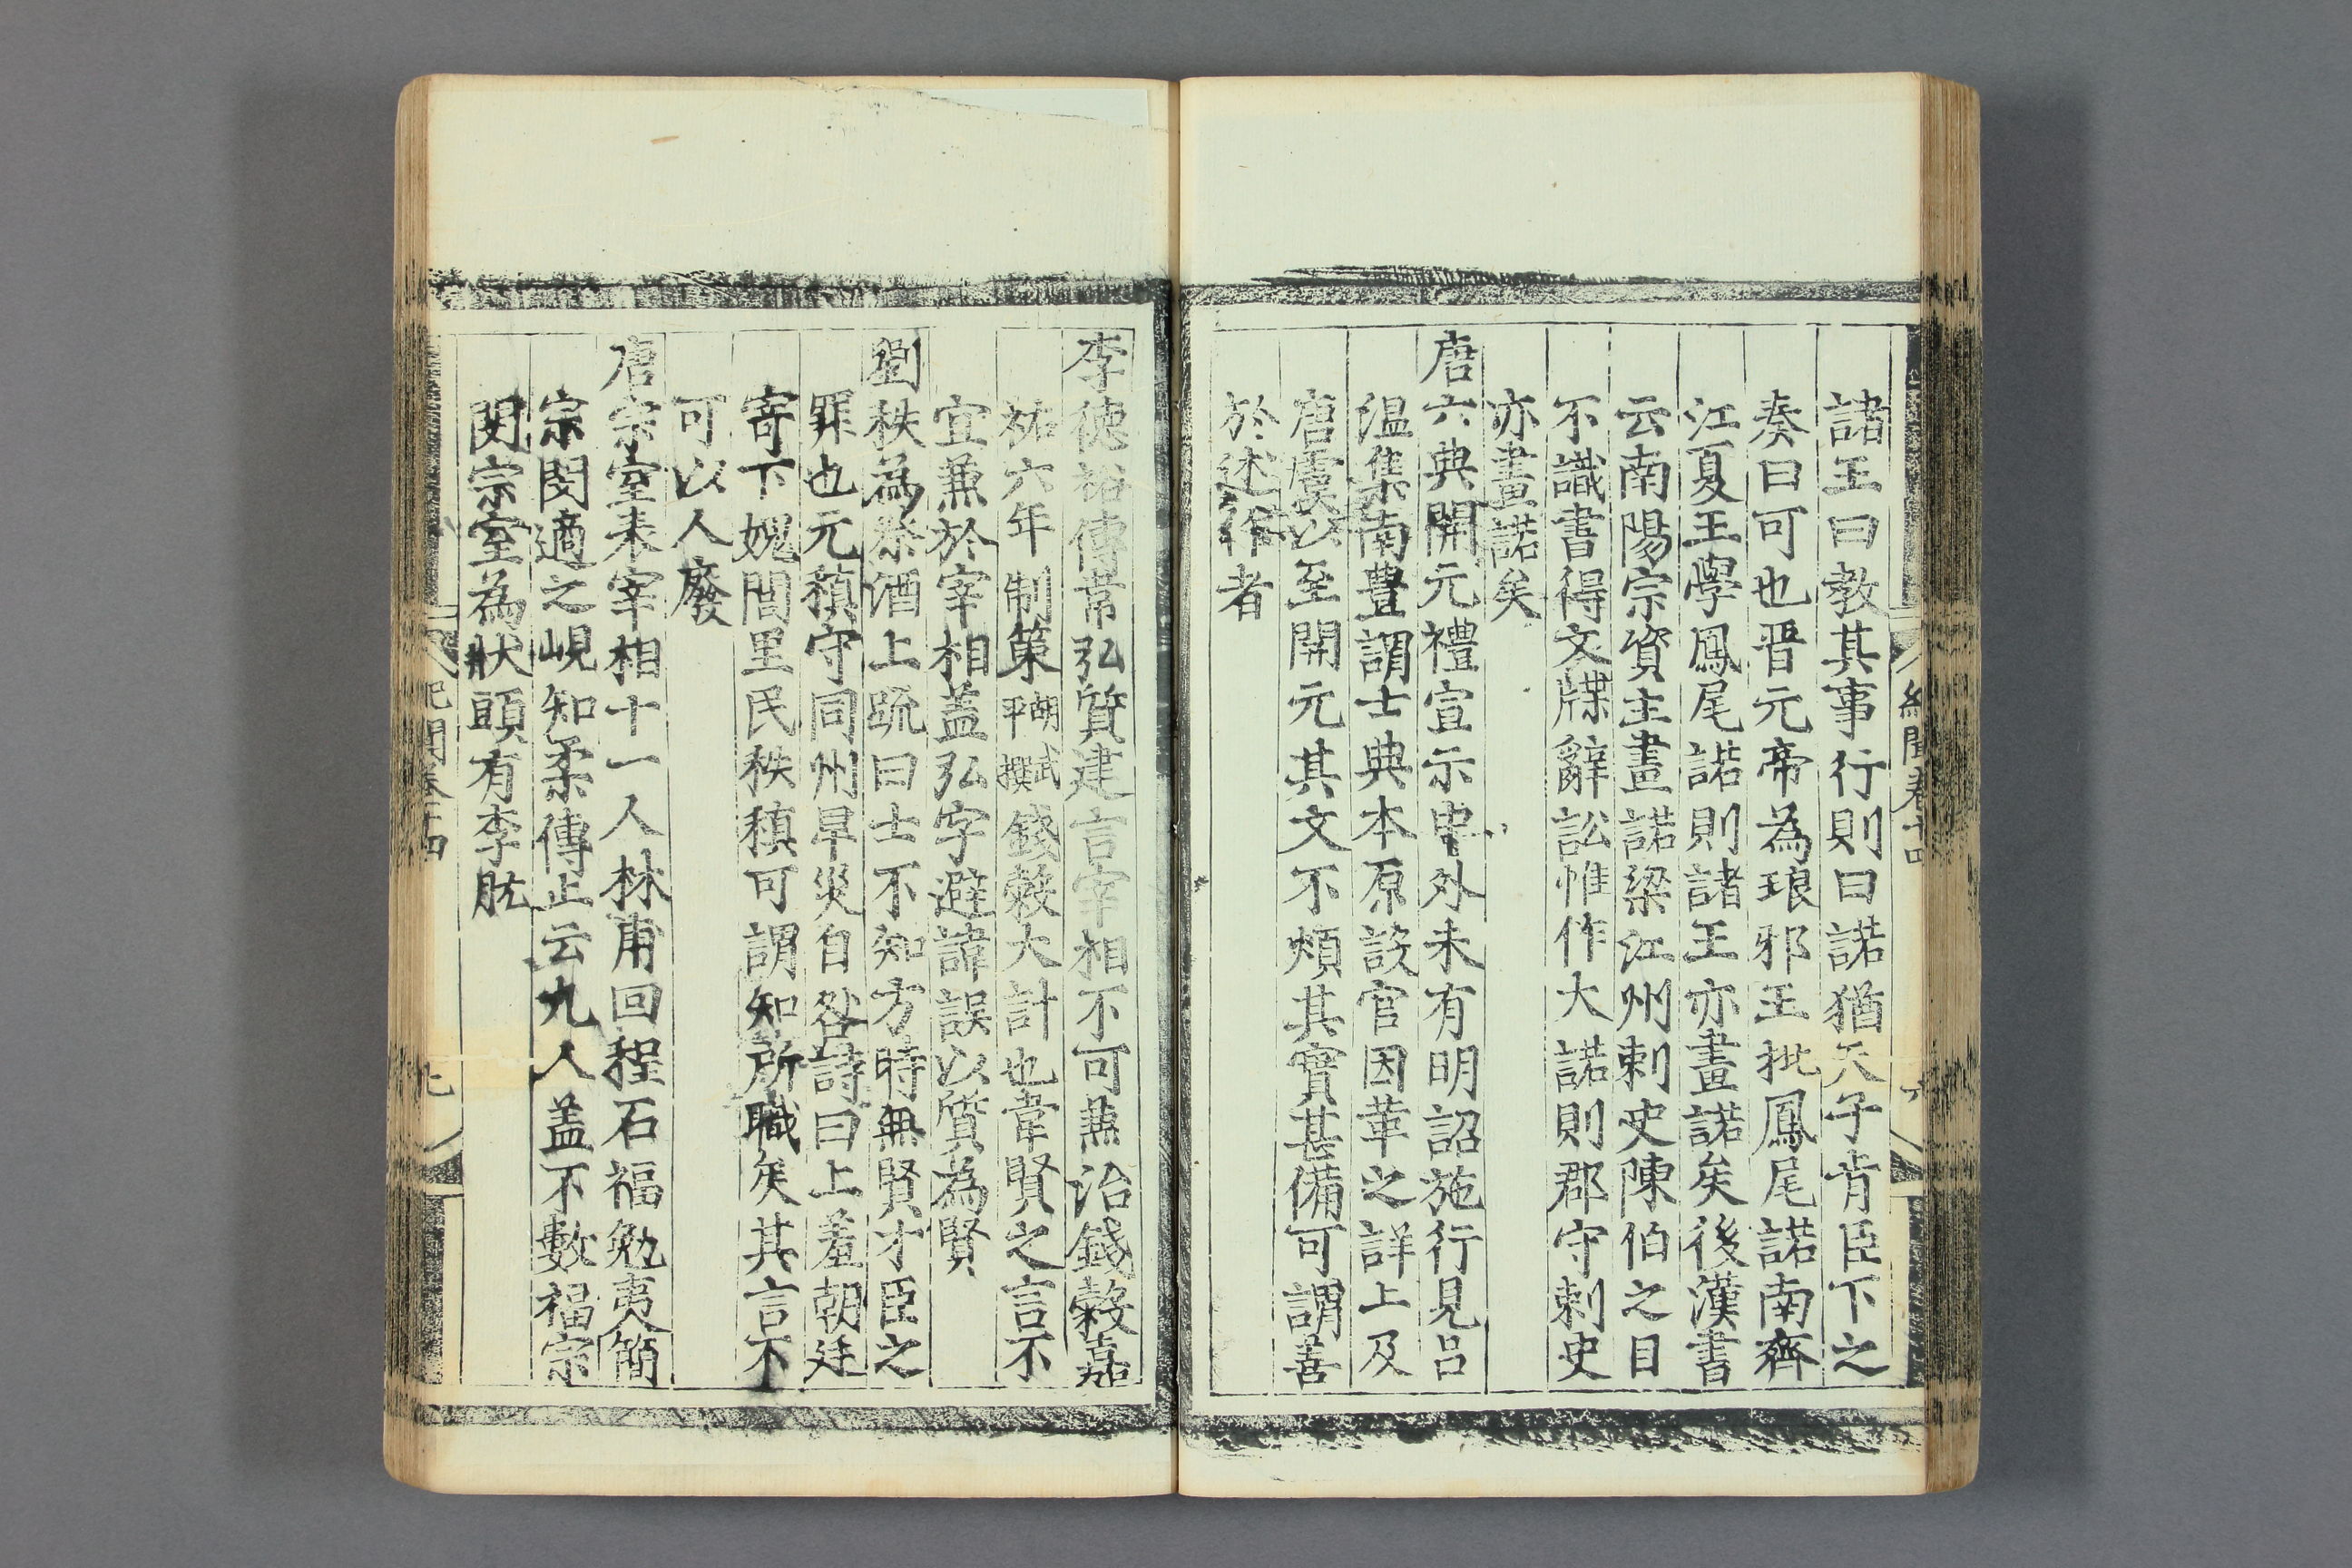 紀聞卷十四
諸王曰教其事行則曰諾猶天子肯臣下之
奏曰可也晋元帝為琅邪王批鳳尾諾南齊
江夏王學鳳尾諾則諸王亦畫諾矣後漢書
云南陽宗資主畫諾梁江州刺史陳伯之目
不識書得文牒辭訟惟作大諾則郡守刺史
亦畫諾矣
唐六典開元禮宣示中外未有明詔施行見吕
温集南豊謂士典本原設官因革之詳上及
唐虞以至開元其文不煩其實甚備可謂善
於述作者
李德裕傳常弘質建言宰相不可兼治錢穀嘉
祐六年制策胡武平撰錢穀大計也韋賢之言不
宜兼於宰相盖弘字避諱誤以質為賢
劉秩為祭酒上疏曰士不知方時無賢才臣之
罪也元稹守同州旱災自咎詩曰上羞朝廷
寄下媿閭里民秩稹可謂知所職矣其言不
可以人廢
唐宗室表宰相十一人林甫回程石福勉夷簡
宗閔適之峴知柔傳止云九人盖不數福宗
閔宗室為狀頭有李肱
紀聞卷十四
七